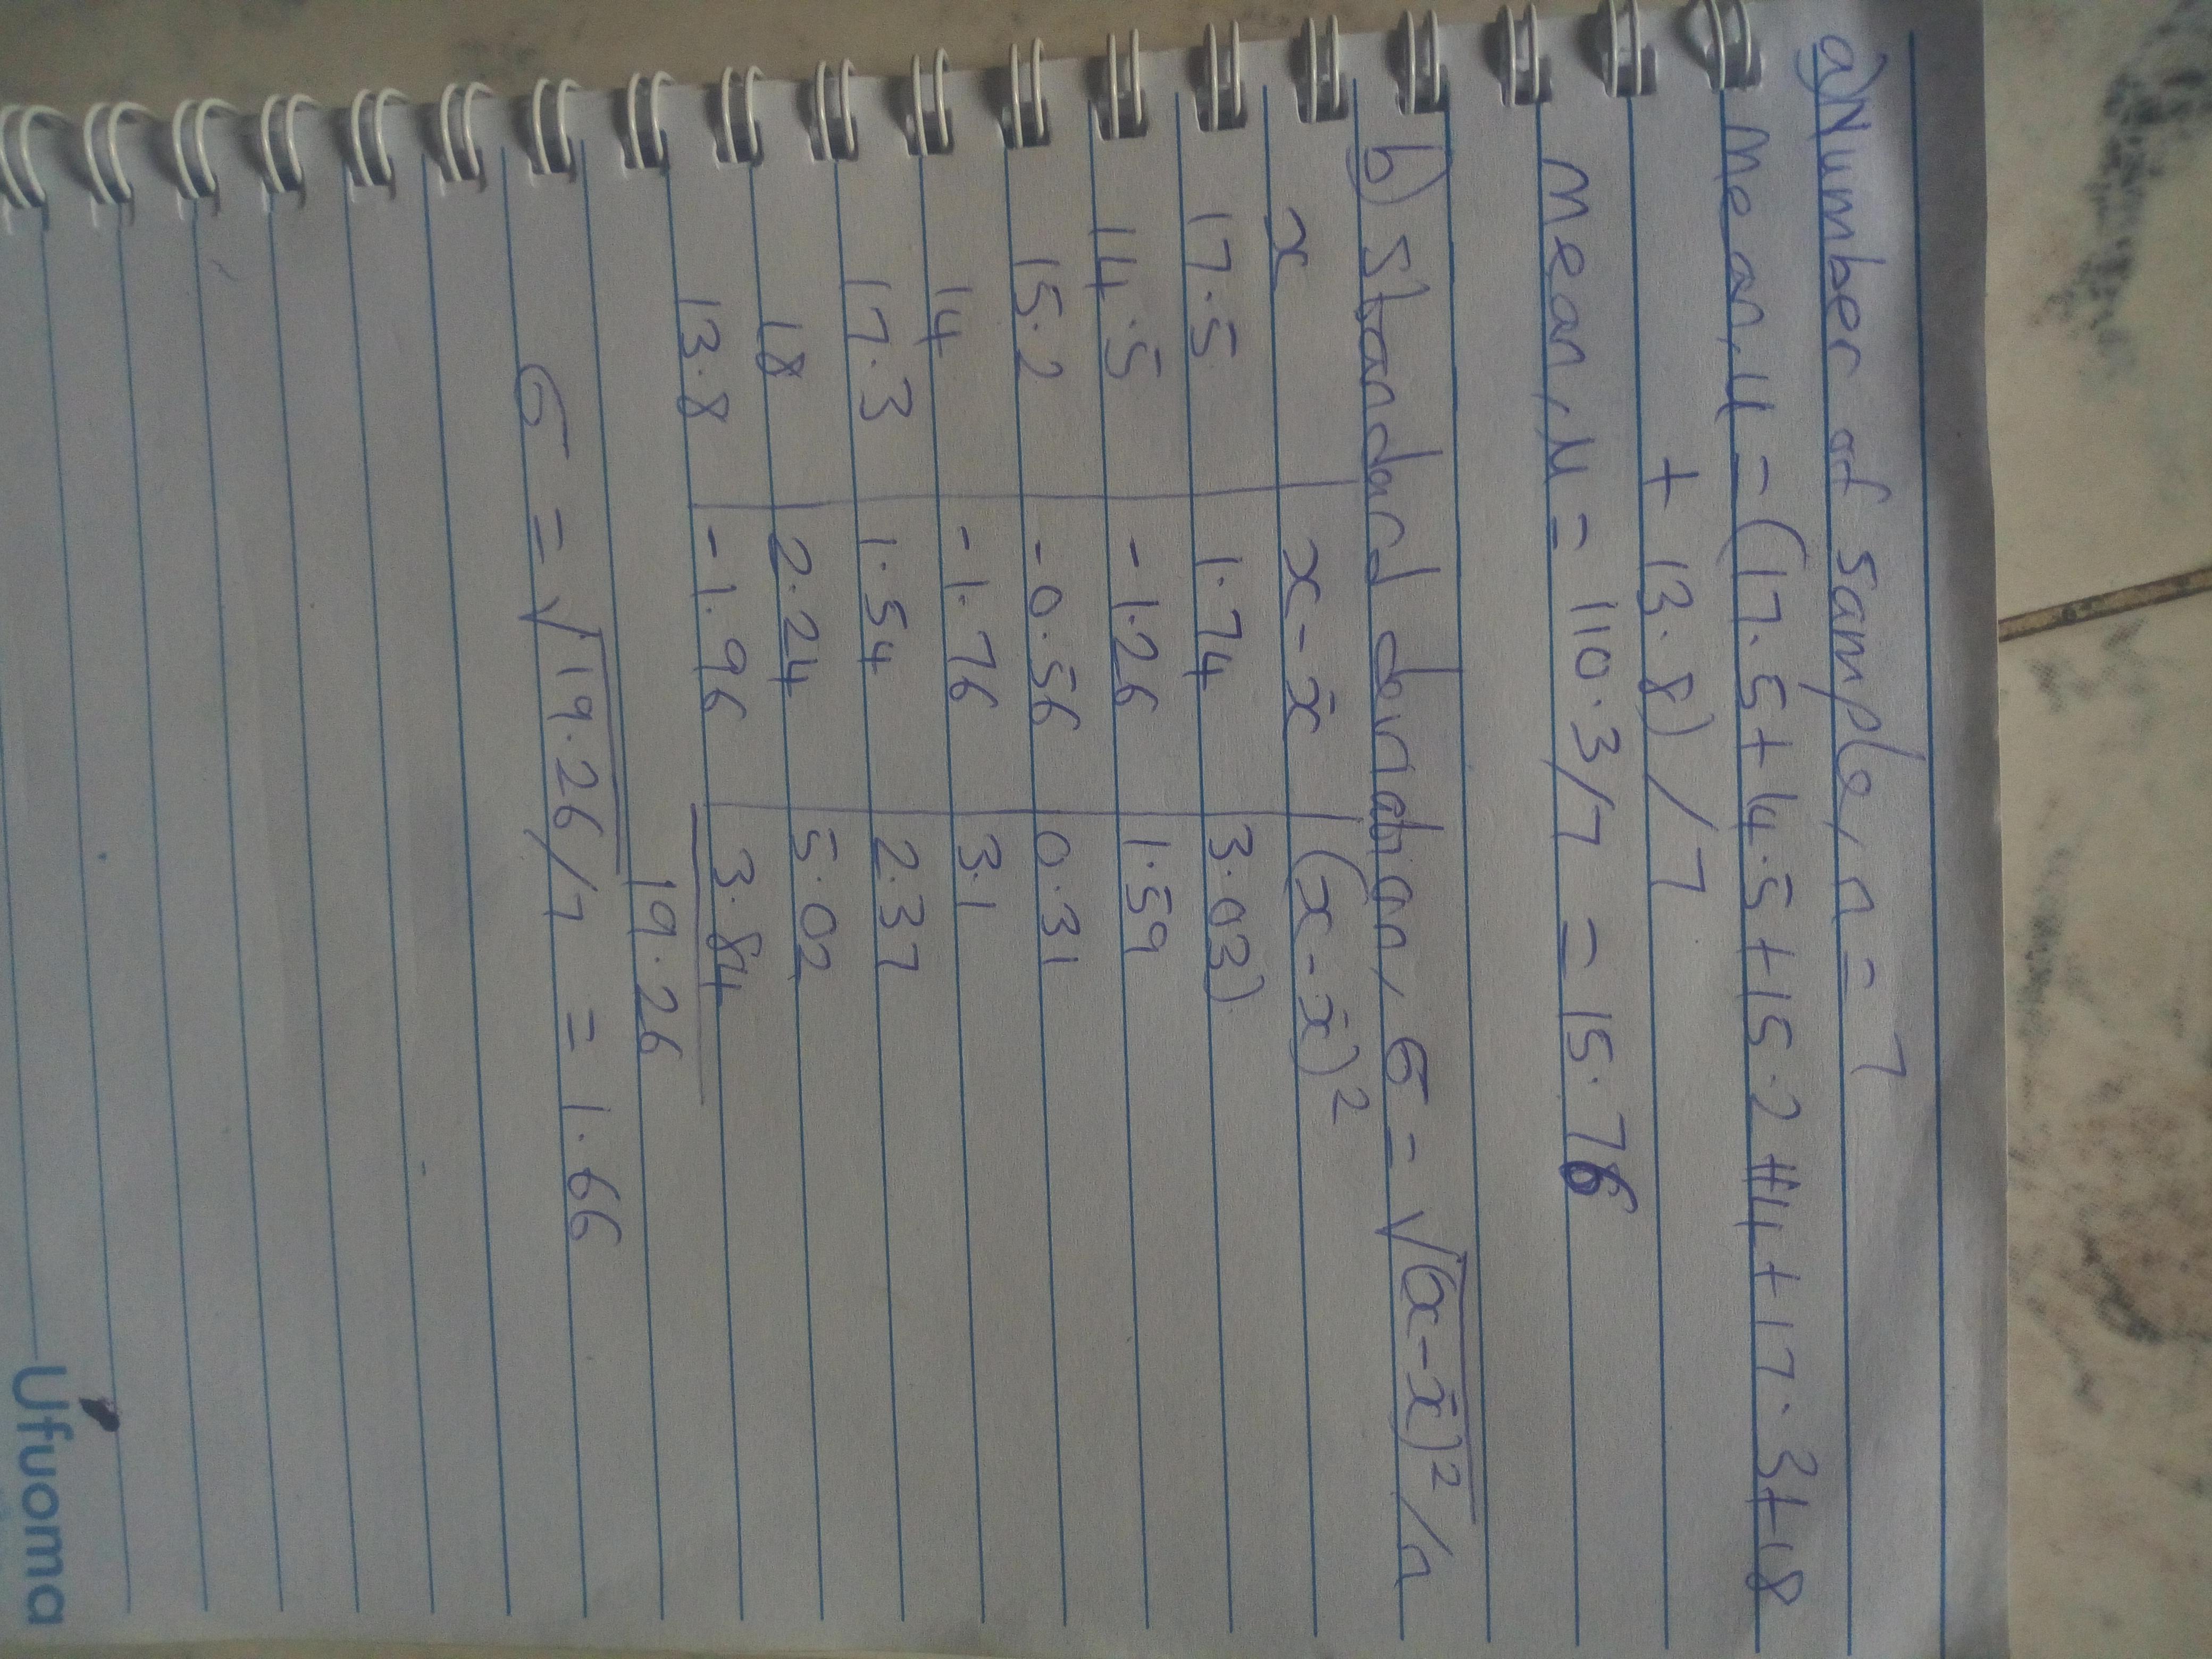 a) Number of sample, n = 7
Mean, μ = (17.5 + 14.5 + 15.2 + 14 + 17.3 + 18
+ 13.8) / 7
Mean, μ = 110.3/7 = 15.76
b) Standard deviation, σ = √(x - x̄)²/n
x x - x̄ (x - x̄)²
17.5 1.74 3.03)
14.5 -1.26 1.59
15.2 -0.56 0.31
14 -1.76 3.1
17.3 1.54 2.37
18 2.24 5.02
13.8 -1.96 3.84
19.26
σ = √19.26/7 = 1.66
Ufuoma